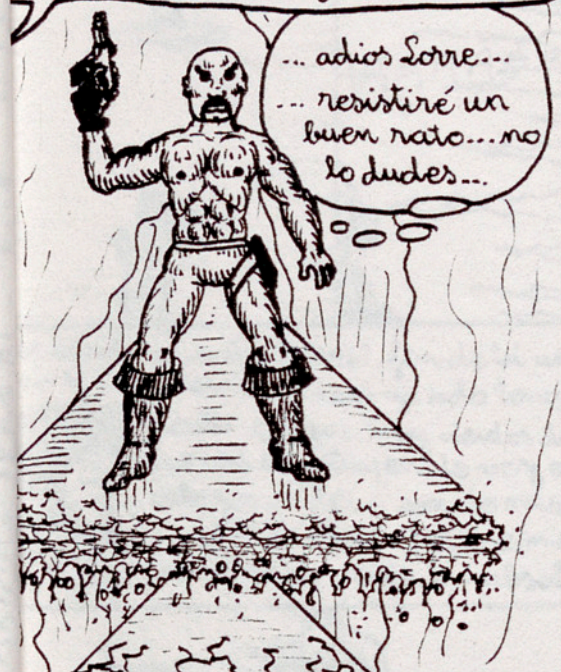 ... adios Lorre...
... resistiré un
buen rato... no
lo dudes...